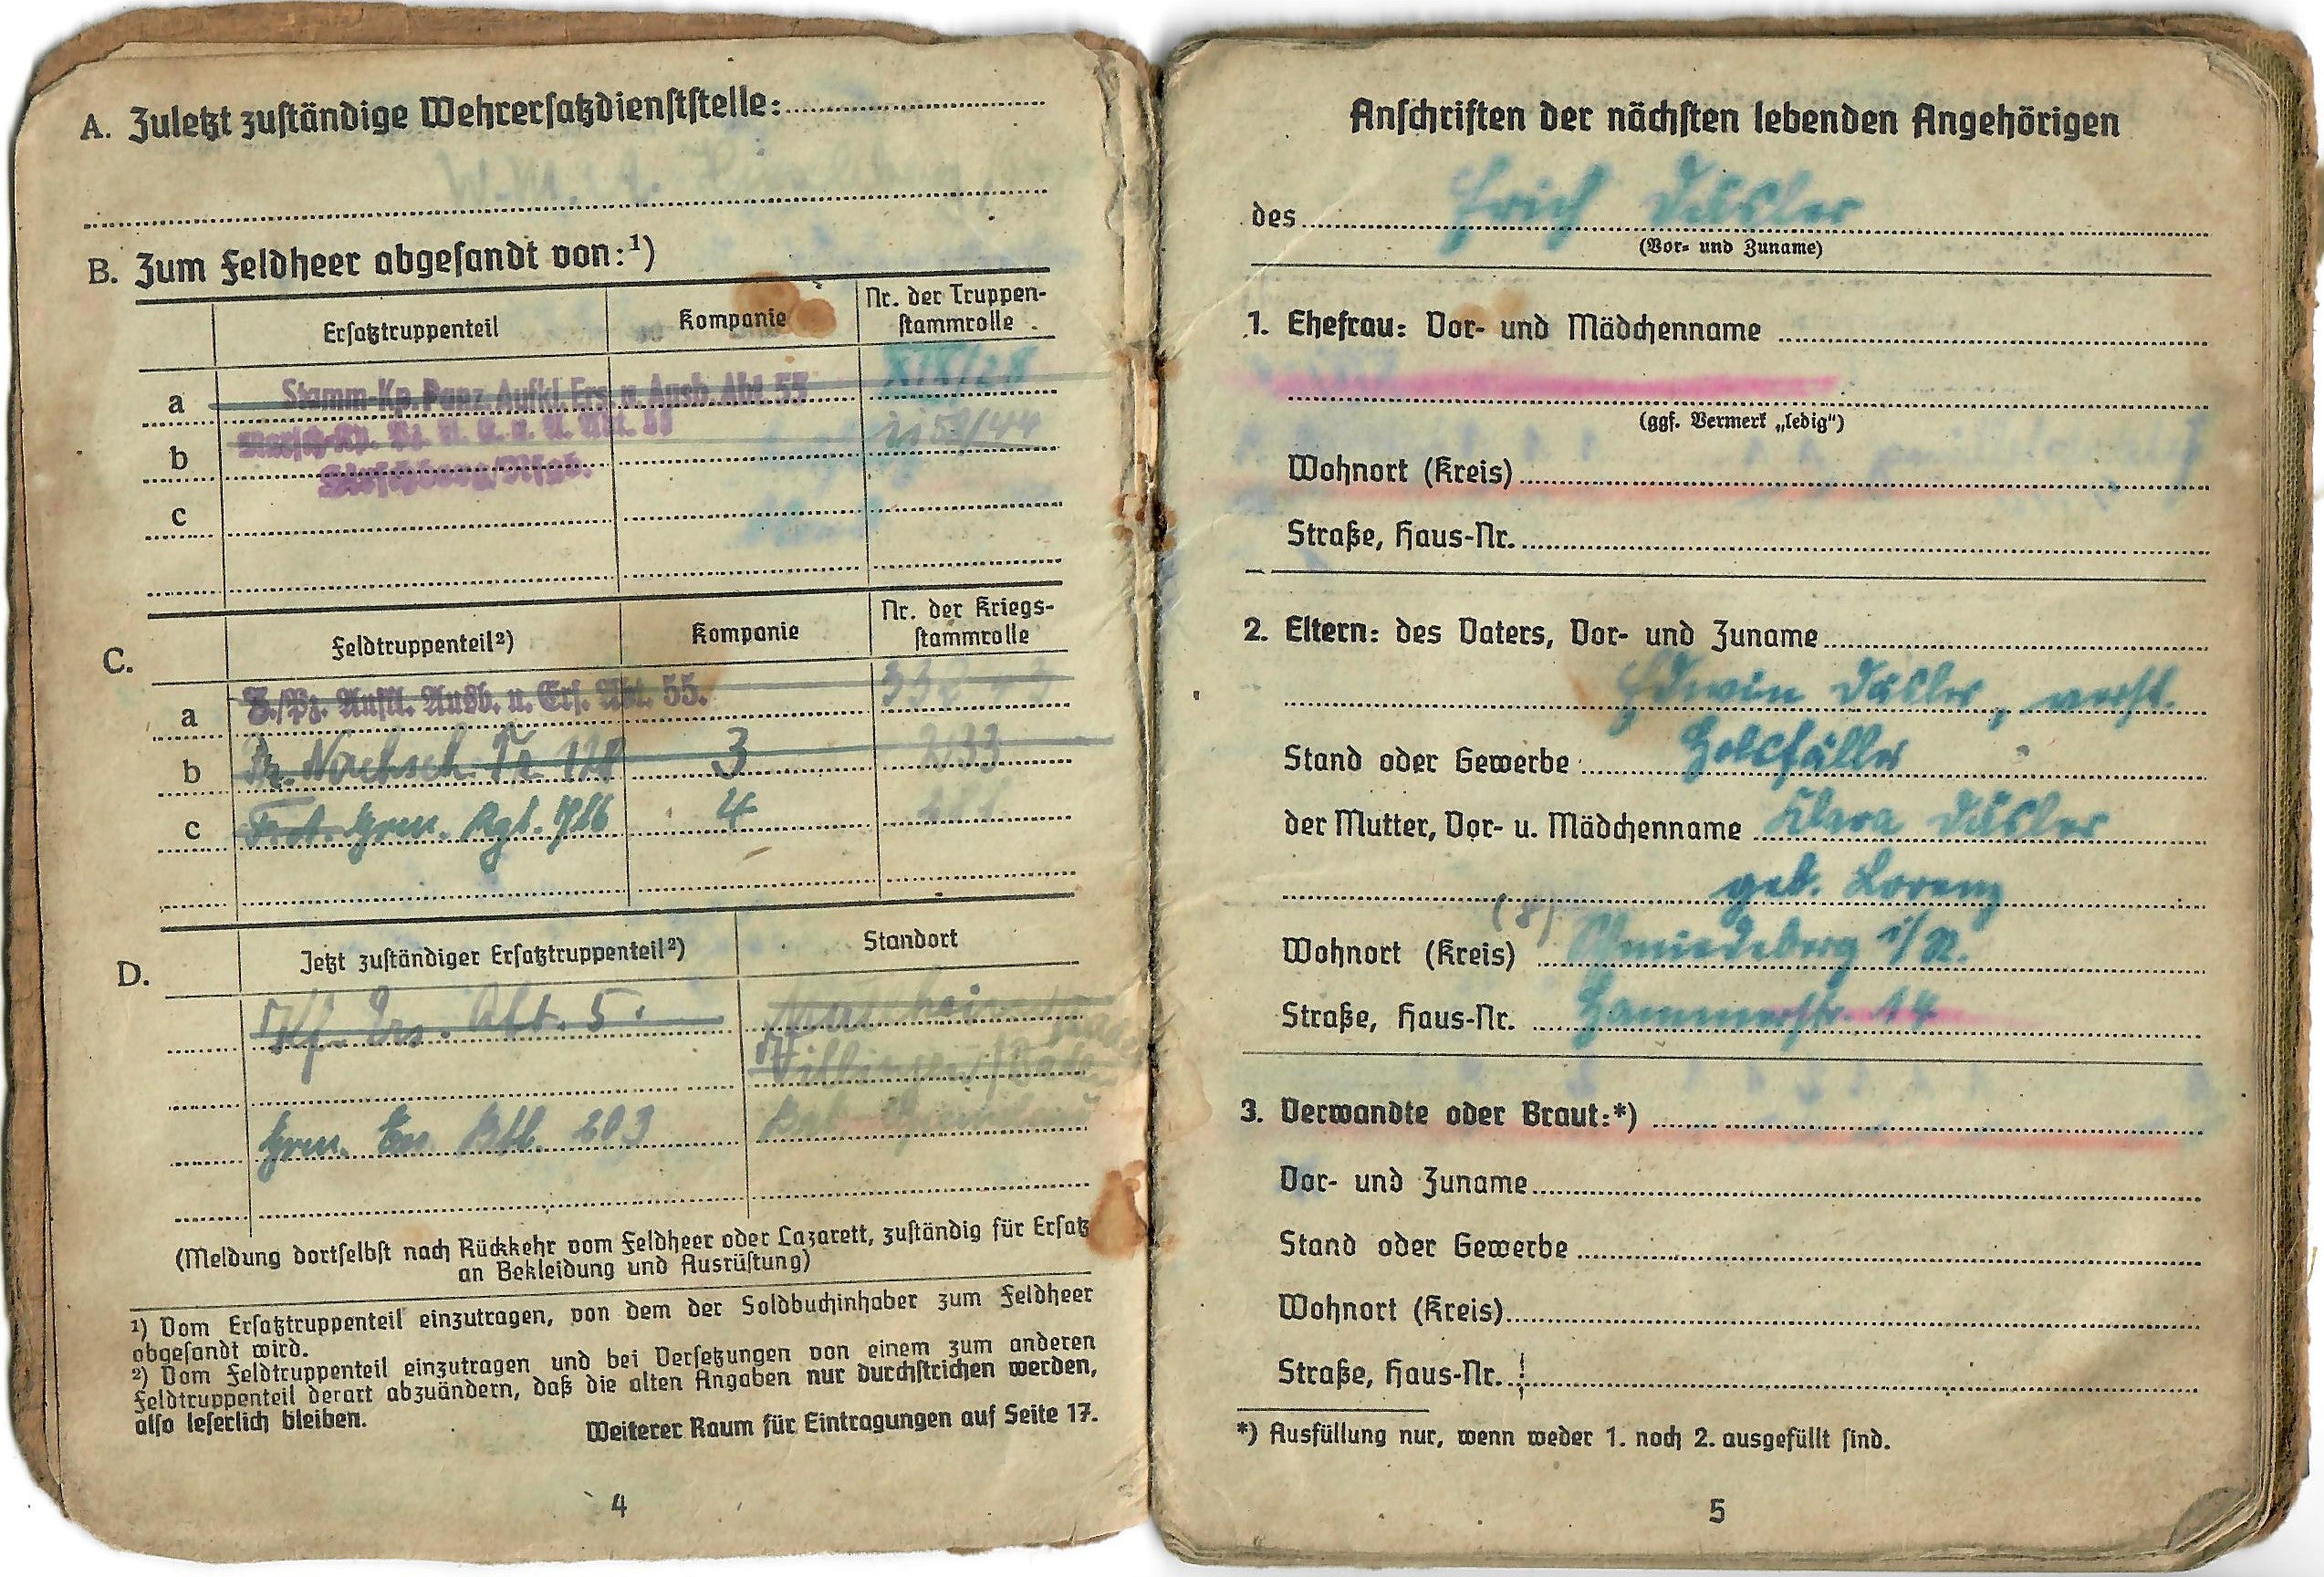 A. Zuletzt zuständige Wehrersatzdienststelle:
W.M.A.
B. Zum Feldheer abgesandt von:¹)
Ersatztruppenteil Kompanie Nr. der Truppenstammrolle
a Stamm-Kp. Panz. Aufkl. Ers. u. Ausb. Abt. 55
b 58/44
Hirschberg/Rsgb.
c
C. Feldtruppenteil²) Kompanie Nr. der Kriegsstammrolle
a Aufkl. Ausb. u. Ers. Abt. 55.
b Nachsch. Tr. 128 3 2133
c Gren. Rgt. 4
D. Jetzt zuständiger Ersatztruppenteil²) Standort
Kf. Ers. Abt. 5.
Villingen/Baden
Gren. Ers. Btl. 203
(Meldung dortselbst nach Rückkehr vom Feldheer oder Lazarett, zuständig für Ersatz
an Bekleidung und Ausrüstung)
¹) Vom Ersatztruppenteil einzutragen, von dem der Soldbuchinhaber zum Feldheer
abgesandt wird.
²) Vom Feldtruppenteil einzutragen und bei Versetzungen von einem zum anderen
Feldtruppenteil derart abzuändern, daß die alten Angaben nur durchstrichen werden,
also leserlich bleiben.
Weiterer Raum für Eintragungen auf Seite 17.
4
Anschriften der nächsten lebenden Angehörigen
des Erich Däsler
(Vor- und Zuname)
1. Ehefrau: Vor- und Mädchenname
(ggf. Vermerk „ledig“)
Wohnort (Kreis)
Straße, Haus-Nr.
2. Eltern: des Vaters, Vor- und Zuname
Edwin Däsler, verst.
Stand oder Gewerbe Holzfäller
der Mutter, Vor- u. Mädchenname Klara Däsler
geb. Lorenz
(8)
Wohnort (Kreis) Schmiedeberg i/R.
Straße, Haus-Nr. Hammerstr. 14
3. Verwandte oder Braut:*)
Vor- und Zuname
Stand oder Gewerbe
Wohnort (Kreis)
Straße, Haus-Nr.
*) Ausfüllung nur, wenn weder 1. noch 2. ausgefüllt sind.
5